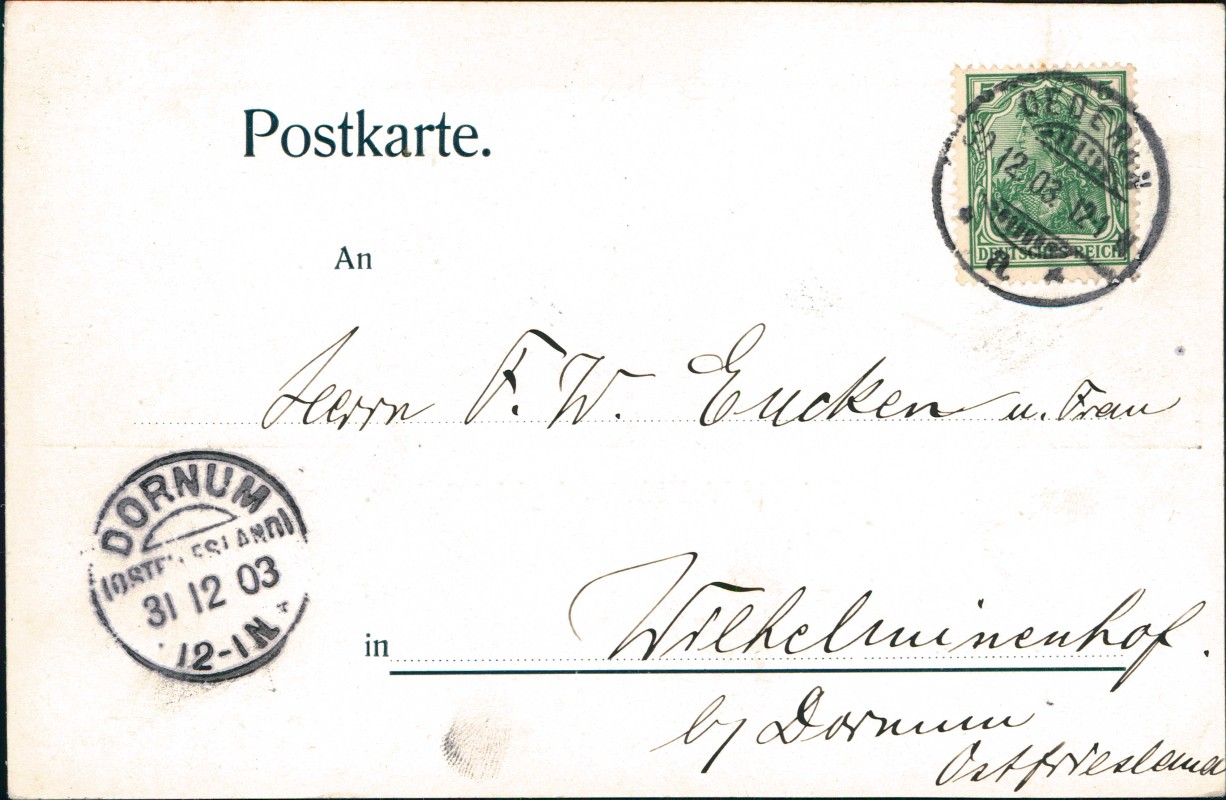 Postkarte.
5 5
OEDERAN
30 12.03. 12-1 N.
DEUTSCHES REICH
a.
An
Herrn F. W. Eucken u. Frau
DORNUM
(OSTFRIESLAND)
31 12 03
12-1N.
in Wilhelminenhof.
by Dornum
Ostfriesland